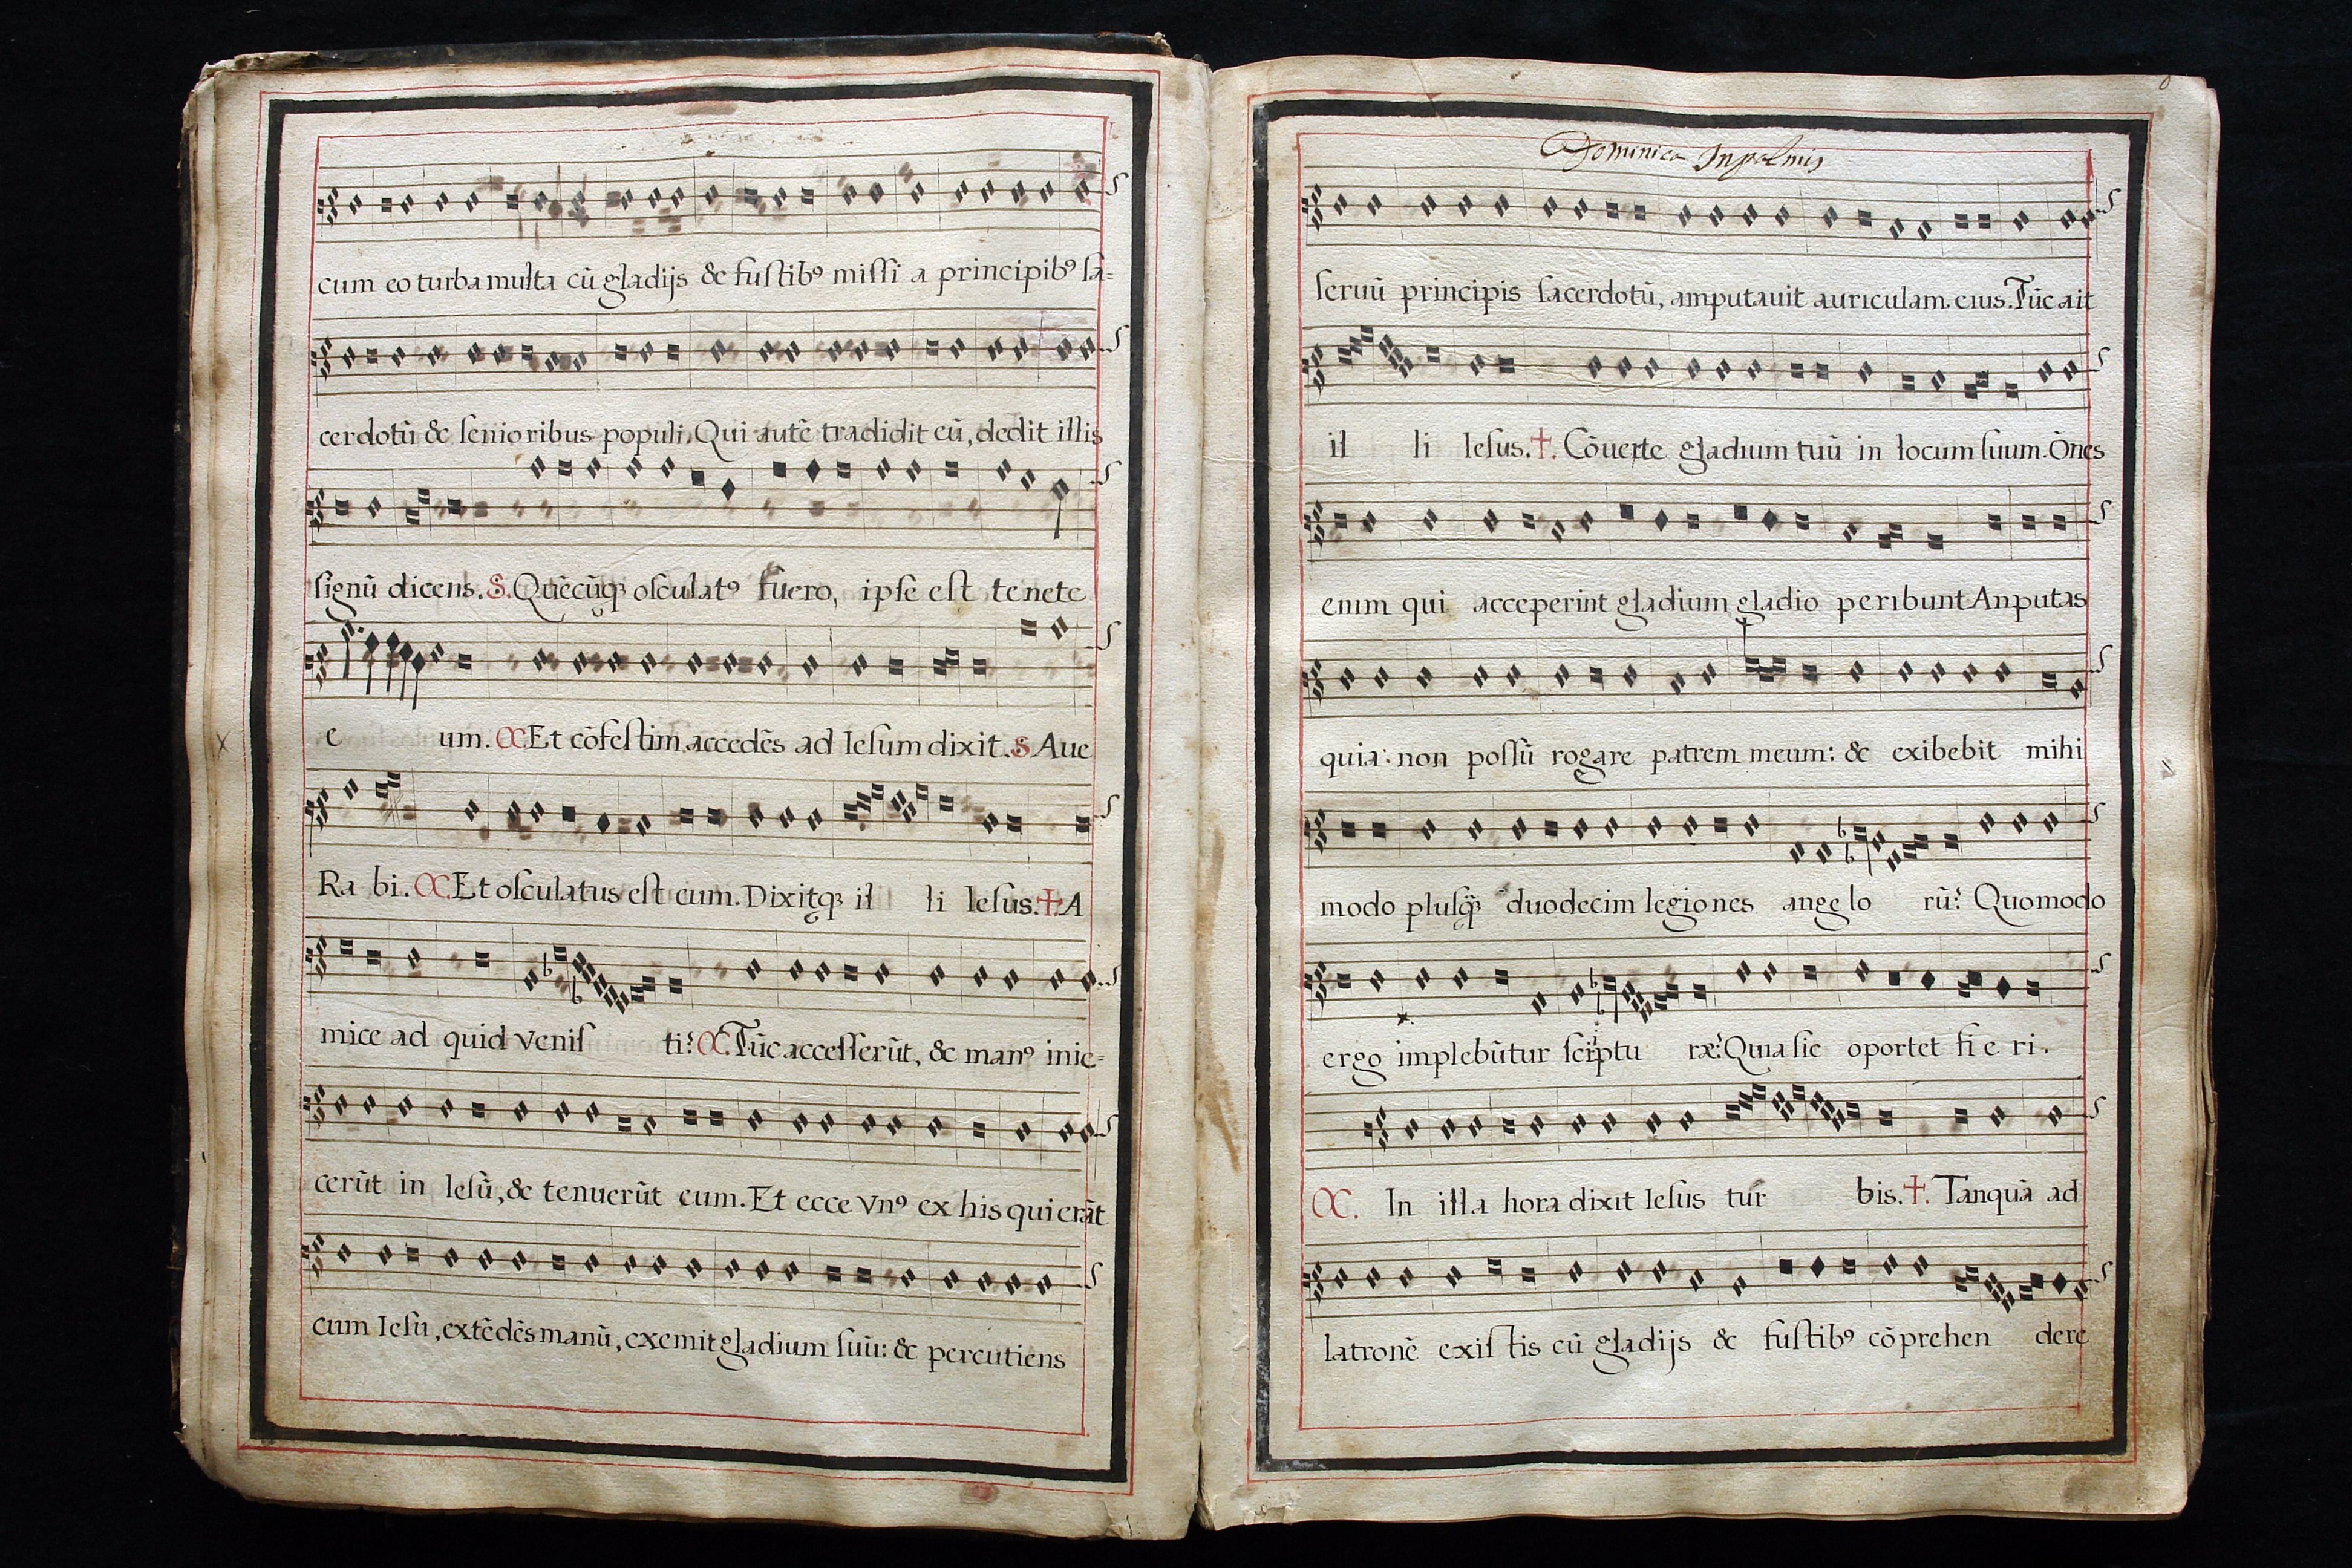 cum eo turba multa cũ gladijs & fuſtibꝰ miſſi a principibꝰ ſa=
cerdotũ & ſenioribus populi, Qui autẽ tradidit eũ, dedit illis
ſignũ dicens. S. Quẽcũqꝫ oſculatꝰ fuero, ipſe eſt tenete
e um. C. Et cõfeſtim accedẽs ad Ieſum dixit. S Aue
Ra bi. C. Et oſculatus eſt eum. Dixitqꝫ il li Ieſus. ✝. A
mice ad quid veniſ ti? C. Tũc acceſſerũt, & manꝰ inie=
cerũt in Ieſũ, & tenuerũt eum. Et ecce vnꝰ ex his qui erãt
cum Ieſu, extẽdẽs manũ, exemit gladium ſuũ: & percutiens
Dominica In palmis
ſeruũ principis ſacerdotũ, amputauit auriculam. eius. Tũc ait
il li Ieſus. ✝. Cõuerte gladium tuũ in locum ſuum. Õnes
enim qui acceperint gladium gladio peribunt An putas
quia non poſſũ rogare patrem meum: & exibebit mihi
modo pluſq̃ꝫ duodecim legiones ange lo rũ? Quomodo
ergo implebũtur ſcriptu ræ? Quia ſic oportet fi e ri.
C. In illa hora dixit Ieſus tur bis. ✝. Tanquã ad
latronẽ exiſ tis cũ gladijs & fuſtibꝰ cõprehen dere